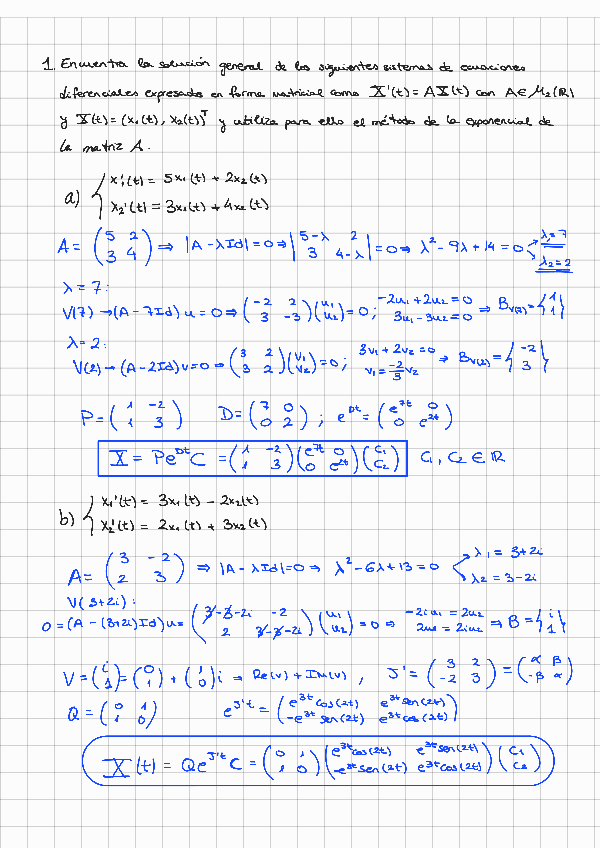 1 Encuentra la solución general de los siguientes sistemas de ecuaciones
diferenciales expresados en forma matricial como X'(t) = AX(t) con A∈M₂(ℝ)
y X(t) = (x₁(t), x₂(t))ᵀ y utiliza para ello el método de la exponencial de
la matriz A.
a) { x₁'(t) = 5x₁(t) + 2x₂(t)
x₂'(t) = 3x₁(t) + 4x₂(t)
A = (5 2; 3 4) ⇒ |A - λId| = 0 ⇒ |5-λ 2; 3 4-λ| = 0 ⇒ λ² - 9λ + 14 = 0 λ₁ = 7 λ₂ = 2
λ = 7:
V(7) → (A - 7Id) u = 0 ⇒ (-2 2; 3 -3)(u₁; u₂) = 0 ; -2u₁ + 2u₂ = 0 3u₁ - 3u₂ = 0 ⇒ B_V(7) = {1; 1}
λ = 2:
V(2) → (A - 2Id) v = 0 ⇒ (3 2; 3 2)(v₁; v₂) = 0 ; 3v₁ + 2v₂ = 0 v₁ = -2/3 v₂ ⇒ B_V(2) = {-2; 3}
P = (1 -2; 1 3) D = (7 0; 0 2) ; e^Dt = (e^7t 0; 0 e^2t)
X = Pe^Dt C = (1 -2; 1 3)(e^7t 0; 0 e^2t)(C₁; C₂) C₁, C₂ ∈ ℝ
b) { x₁'(t) = 3x₁(t) - 2x₂(t)
x₂'(t) = 2x₁(t) + 3x₂(t)
A = (3 -2; 2 3) ⇒ |A - λId| = 0 ⇒ λ² - 6λ + 13 = 0 λ₁ = 3+2i λ₂ = 3-2i
V(3+2i):
0 = (A - (3+2i)Id)u = (3-3-2i -2; 2 3-3-2i)(u₁; u₂) = 0 ⇒ -2iu₁ = 2u₂ 2u₁ = 2iu₂ ⇒ B = {i; 1}
V = (i; 1) = (0; 1) + (1; 0)i ⇒ Re(v) + Im(v) , J' = (3 2; -2 3) = (α β; -β α)
Q = (0 1; 1 0) e^J't = (e^3t cos(2t) e^3t sen(2t); -e^3t sen(2t) e^3t cos(2t))
X(t) = Qe^J't C = (0 1; 1 0)(e^3t cos(2t) e^3t sen(2t); -e^3t sen(2t) e^3t cos(2t))(C₁; C₂)